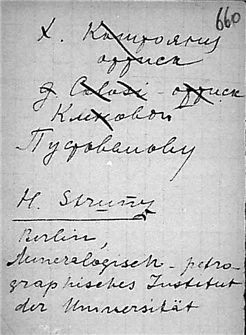 660
х. Камфояну
оттиск
g Calozi - оттиск
Климовой
Пустовалову
H. Strunz
Berlin,
Mineralogisch-petro-
graphisches Institut
der Universität